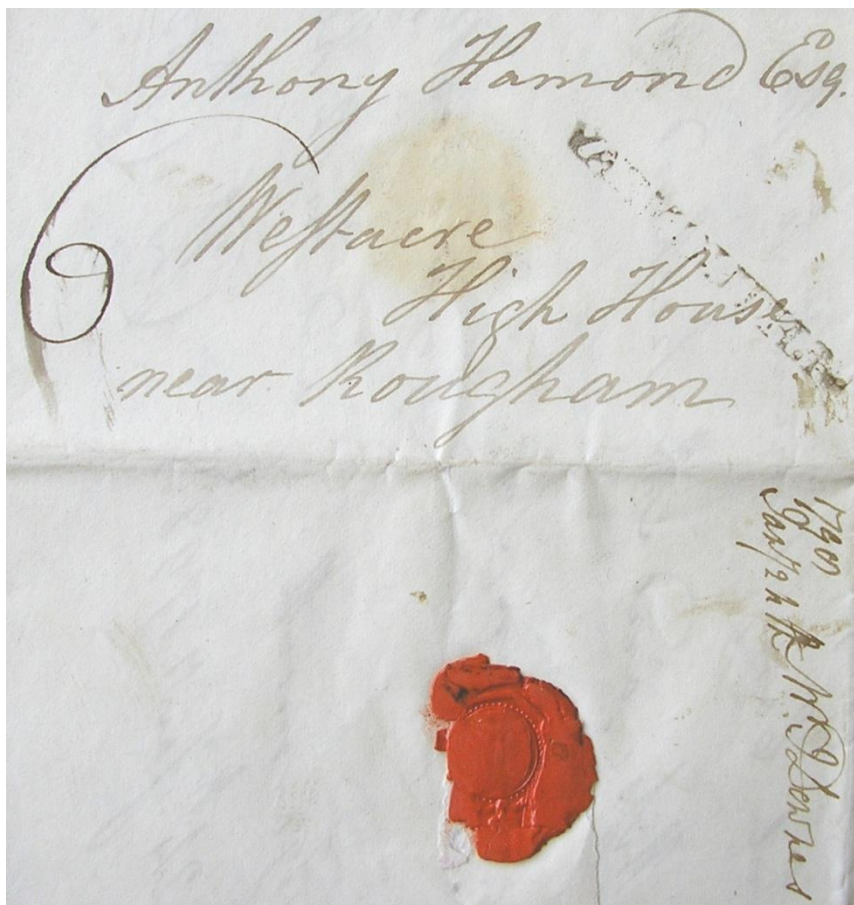 Anthony Hamond Esq.
6
Westacre
High House
near Rougham
Jany 24th Wm Downes